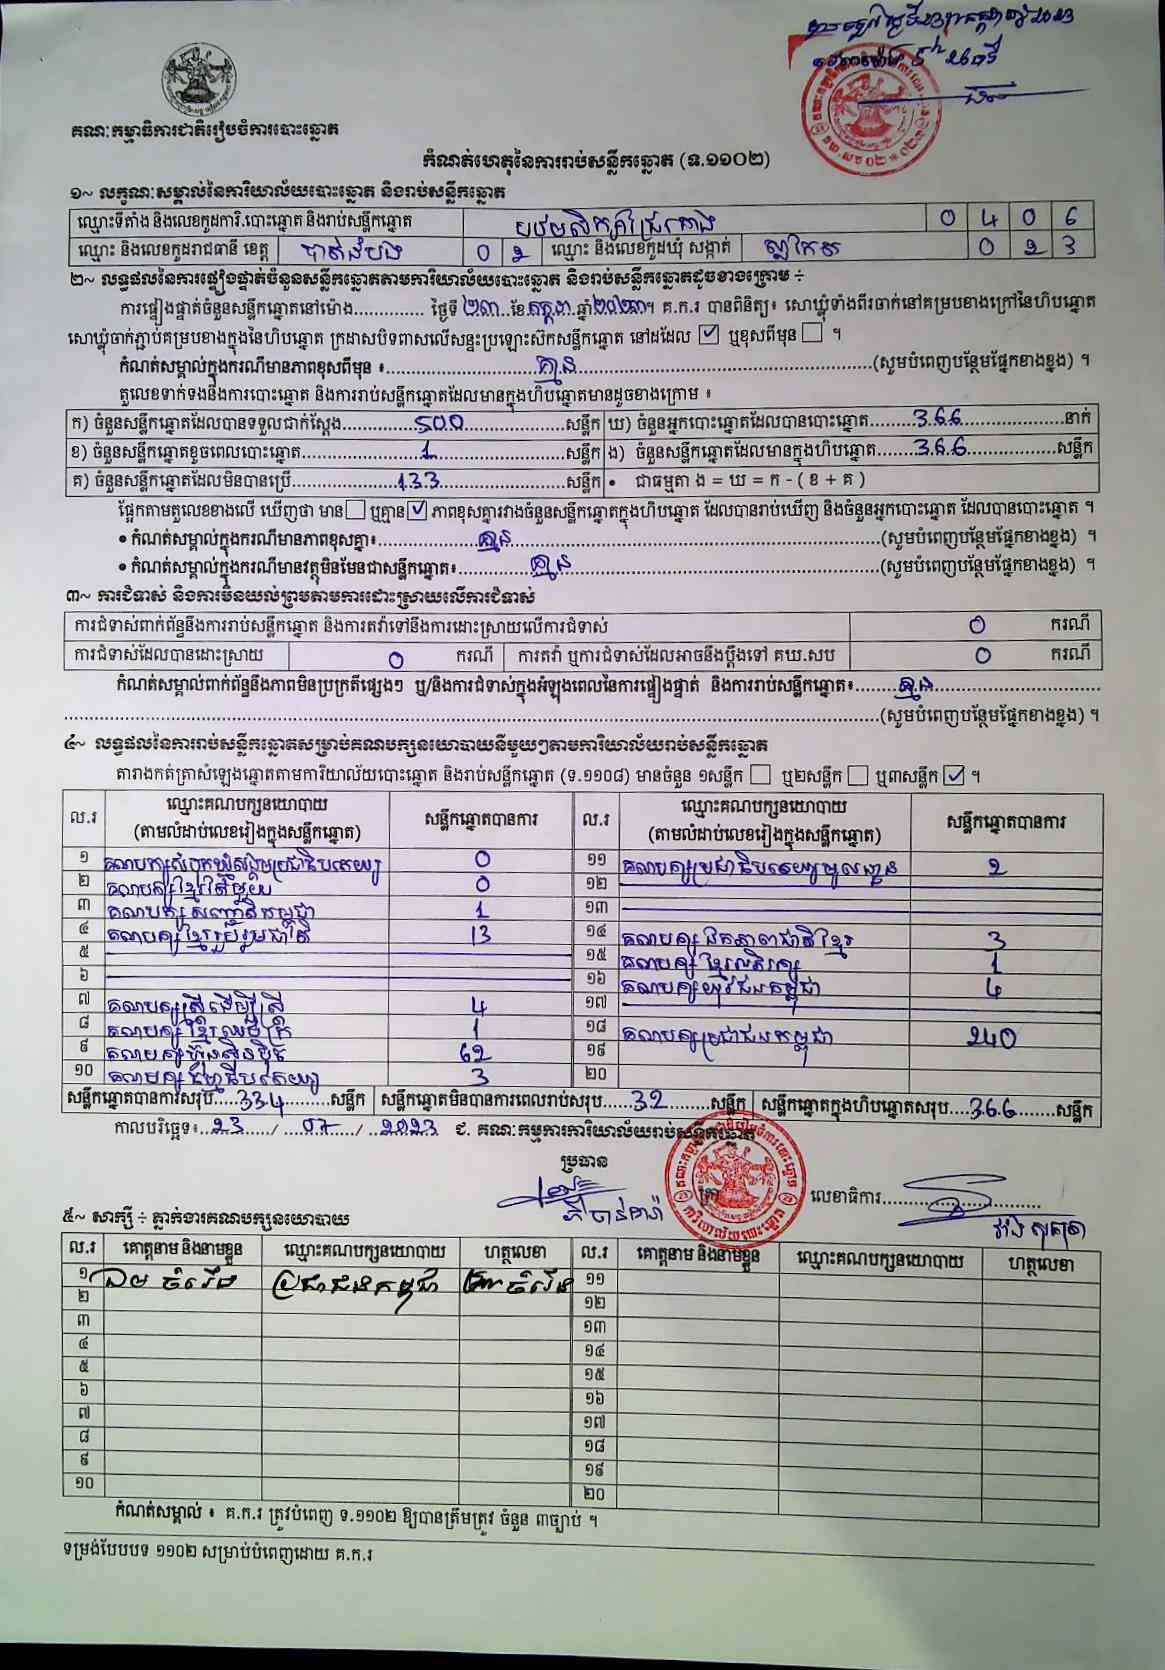 គណៈកម្មាធិការជាតិរៀបចំការបោះឆ្នោត
កំណត់ហេតុនៃការរាប់សន្លឹកឆ្នោត (ទ.១១០២)
១~ លក្ខណៈសម្គាល់នៃការិយាល័យបោះឆ្នោត និងរាប់សន្លឹកឆ្នោត
ឈ្មោះទីតាំង និងលេខកូដការិ.បោះឆ្នោត និងរាប់សន្លឹកឆ្នោត 0 4 0 6
ឈ្មោះ និងលេខកូដរាជធានី ខេត្ត បាត់ដំបង 0 2 ឈ្មោះ និងលេខកូដឃុំ សង្កាត់ 0 2 3
២~ លទ្ធផលនៃការផ្ទៀងផ្ទាត់ចំនួនសន្លឹកឆ្នោតតាមការិយាល័យបោះឆ្នោត និងរាប់សន្លឹកឆ្នោតដូចខាងក្រោម ÷
ការផ្ទៀងផ្ទាត់ចំនួនសន្លឹកឆ្នោតនៅម៉ោង.............. ថ្ងៃទី ២៣..ខែ កក្កដា ឆ្នាំ ២០២៣។ គ.ក.រ បានពិនិត្យ៖ សោឃ្លុំទាំងពីរចាក់នៅគម្របខាងក្រៅនៃហិបឆ្នោត
សោឃ្លុំចាក់ភ្ជាប់គម្របខាងក្នុងនៃហិបឆ្នោត ក្រដាសបិទពាសលើសន្ទះប្រឡោះស៊កសន្លឹកឆ្នោត នៅដដែល ✓ ឬខុសពីមុន ។
កំណត់សម្គាល់ក្នុងករណីមានភាពខុសពីមុន ៖ គ្មាន (សូមបំពេញបន្ថែមផ្នែកខាងខ្នង) ។
តួលេខទាក់ទងនឹងការបោះឆ្នោត និងការរាប់សន្លឹកឆ្នោតដែលមានក្នុងហិបឆ្នោតមានដូចខាងក្រោម ៖
ក) ចំនួនសន្លឹកឆ្នោតដែលបានទទួលជាក់ស្តែង 500 សន្លឹក ឃ) ចំនួនអ្នកបោះឆ្នោតដែលបានបោះឆ្នោត 366 នាក់
ខ) ចំនួនសន្លឹកឆ្នោតខូចពេលបោះឆ្នោត 1 សន្លឹក ង) ចំនួនសន្លឹកឆ្នោតដែលមានក្នុងហិបឆ្នោត 366 សន្លឹក
គ) ចំនួនសន្លឹកឆ្នោតដែលមិនបានប្រើ 133 សន្លឹក • ជាធម្មតា ង = ឃ = ក - ( ខ + គ )
ផ្អែកតាមតួលេខខាងលើ ឃើញថា មាន ឬគ្មាន ✓ ភាពខុសគ្នារវាងចំនួនសន្លឹកឆ្នោតក្នុងហិបឆ្នោត ដែលបានរាប់ឃើញ និងចំនួនអ្នកបោះឆ្នោត ដែលបានបោះឆ្នោត ។
• កំណត់សម្គាល់ក្នុងករណីមានភាពខុសគ្នា៖ គ្មាន (សូមបំពេញបន្ថែមផ្នែកខាងខ្នង) ។
• កំណត់សម្គាល់ក្នុងករណីមានវត្ថុមិនមែនជាសន្លឹកឆ្នោត៖ គ្មាន (សូមបំពេញបន្ថែមផ្នែកខាងខ្នង) ។
៣~ ការជំទាស់ និងការមិនយល់ព្រមតាមការដោះស្រាយលើការជំទាស់
ការជំទាស់ពាក់ព័ន្ធនឹងការរាប់សន្លឹកឆ្នោត និងការតវ៉ាទៅនឹងការដោះស្រាយលើការជំទាស់ 0 ករណី
ការជំទាស់ដែលបានដោះស្រាយ 0 ករណី ការតវ៉ា ឬការជំទាស់ដែលអាចនឹងប្តឹងទៅ គឃ.សប 0 ករណី
កំណត់សម្គាល់ពាក់ព័ន្ធនឹងភាពមិនប្រក្រតីផ្សេងៗ ឬ/និងការជំទាស់ក្នុងអំឡុងពេលនៃការផ្ទៀងផ្ទាត់ និងការរាប់សន្លឹកឆ្នោត៖ គ្មាន
(សូមបំពេញបន្ថែមផ្នែកខាងខ្នង) ។
៤~ លទ្ធផលនៃការរាប់សន្លឹកឆ្នោតសម្រាប់គណបក្សនយោបាយនីមួយៗតាមការិយាល័យរាប់សន្លឹកឆ្នោត
តារាងកត់ត្រាសំឡេងឆ្នោតតាមការិយាល័យបោះឆ្នោត និងរាប់សន្លឹកឆ្នោត (ទ.១១០៨) មានចំនួន ១សន្លឹក ឬ២សន្លឹក ឬ៣សន្លឹក ✓ ។
ល.រ ឈ្មោះគណបក្សនយោបាយ (តាមលំដាប់លេខរៀងក្នុងសន្លឹកឆ្នោត) សន្លឹកឆ្នោតបានការ ល.រ ឈ្មោះគណបក្សនយោបាយ (តាមលំដាប់លេខរៀងក្នុងសន្លឹកឆ្នោត) សន្លឹកឆ្នោតបានការ
១ គណបក្សសំបុកឃ្មុំសង្គមប្រជាធិបតេយ្យ 0 ១១ គណបក្សប្រជាធិបតេយ្យមូលដ្ឋាន 2
២ គណបក្សខ្មែរតែមួយ 0 ១២
៣ គណបក្សសញ្ជាតិកម្ពុជា 1 ១៣
៤ គណបក្សខ្មែររួបរួមជាតិ 13 ១៤ គណបក្សឯកភាពជាតិខ្មែរ 3
៥ ១៥ គណបក្សខ្មែរអភិរក្ស 1
៦ ១៦ គណបក្សយុវជនកម្ពុជា 4
៧ គណបក្សស្ត្រីដើម្បីស្ត្រី 4 ១៧
៨ គណបក្សខ្មែរឈប់ក្រ 1 ១៨ គណបក្សប្រជាជនកម្ពុជា 240
៩ គណបក្សហ៊្វុនស៊ិនប៉ិច 62 ១៩
១០ គណបក្សធម្មាធិបតេយ្យ 3 ២០
សន្លឹកឆ្នោតបានការសរុប 334 សន្លឹក សន្លឹកឆ្នោតមិនបានការពេលរាប់សរុប 32 សន្លឹក សន្លឹកឆ្នោតក្នុងហិបឆ្នោតសរុប 366 សន្លឹក
កាលបរិច្ឆេទ៖ 23 / 07 / 2023 ជ. គណៈកម្មការការិយាល័យរាប់សន្លឹកឆ្នោត
ប្រធាន លេខាធិការ
៥~ សាក្សី ÷ ភ្នាក់ងារគណបក្សនយោបាយ
ល.រ គោត្តនាម និងនាមខ្លួន ឈ្មោះគណបក្សនយោបាយ ហត្ថលេខា ល.រ គោត្តនាម និងនាមខ្លួន ឈ្មោះគណបក្សនយោបាយ ហត្ថលេខា
១ ប្រជាជនកម្ពុជា ១១
២ ១២
៣ ១៣
៤ ១៤
៥ ១៥
៦ ១៦
៧ ១៧
៨ ១៨
៩ ១៩
១០ ២០
កំណត់សម្គាល់ ៖ គ.ក.រ ត្រូវបំពេញ ទ.១១០២ ឱ្យបានត្រឹមត្រូវ ចំនួន ៣ច្បាប់ ។
ទម្រង់បែបបទ ១១០២ សម្រាប់បំពេញដោយ គ.ក.រ